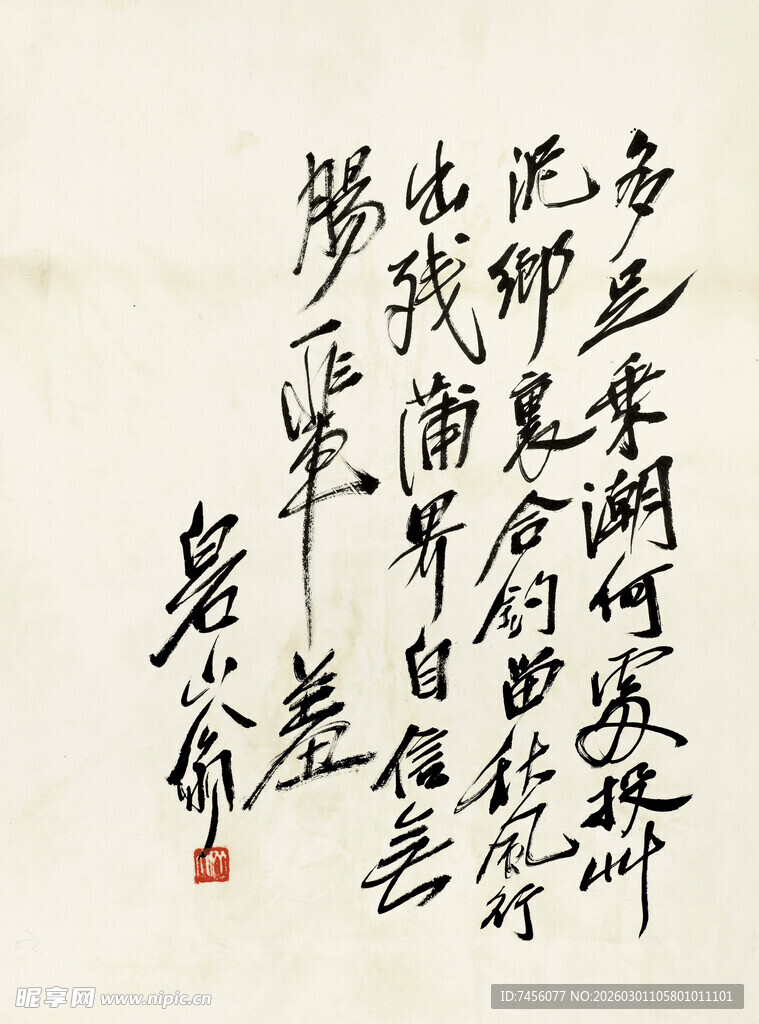 多足乘潮何處投艸
泥鄉裏合鈎留秋風行
出残蒲界自信無
腸輩羞
白石山翁
昵享网 www.nipic.cn
ID:7456077 NO:20260301105801011101